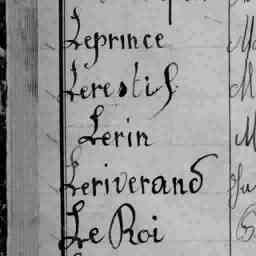 Leprince M
Lerestif M
Lerin M
Leriverand Ju
Le Roi G